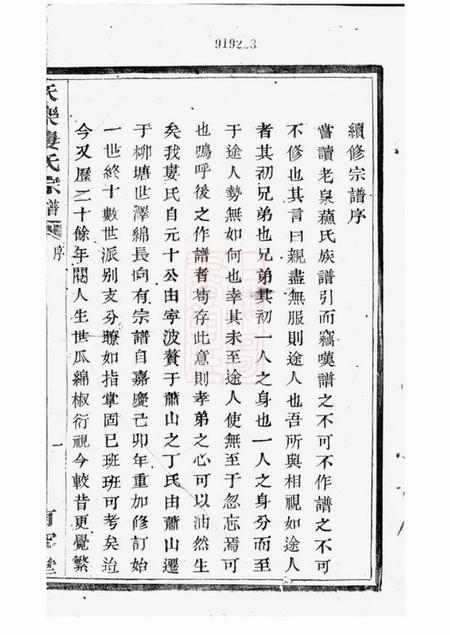 919223
續修宗譜序
嘗讀老泉蘇氏族譜引而竊嘆譜之不可不作譜之不可
不修也其言曰親盡無服則途人也吾所與相視如途人
者其初兄弟也兄弟其初一人之身也一人之身分而至
于途人勢無如何也幸其未至途人使無至于忽忘焉可
也嗚呼後之作譜者苟存此意則孝弟之心可以油然生
矣我婁氏自元十公由寧波贅于蕭山之丁氏由蕭山遷
于柳塘世澤綿長向有宗譜自嘉慶己卯年重加修訂始
一世終十數世派别支分瞭如指掌固已班班可考矣迨
今又歷二十餘年閱人生世瓜綿椒衍視今較昔更覺繁
婁氏宗譜 序
一
堂